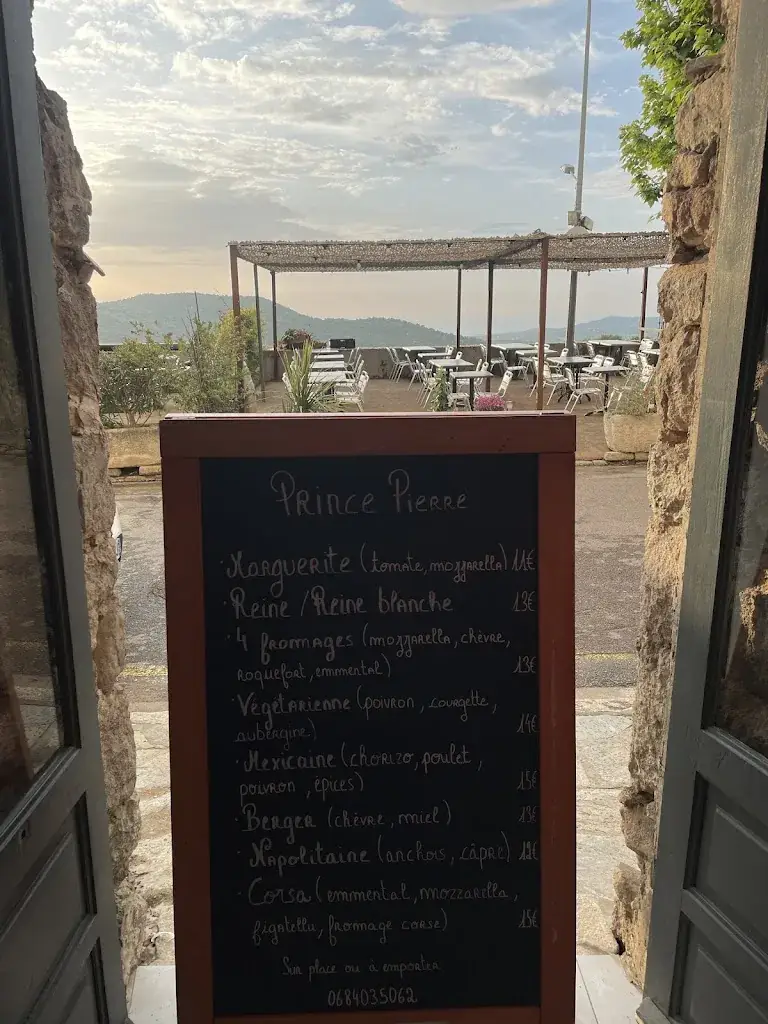 Prince Pierre
· Marguerite (tomate, mozzarella) 11€
· Reine / Reine blanche 13€
· 4 fromages (mozzarella, chèvre,
roquefort, emmental) 13€
· Végétarienne (poivron, courgette,
aubergine) 14€
· Mexicaine (chorizo, poulet,
poivron, épices) 15€
· Berger (chèvre, miel)
· Napolitaine (anchois, câpre)
· Corsa (emmental, mozzarella,
figatellu, fromage corse) 15€
Sur place ou à emporter
0684035062